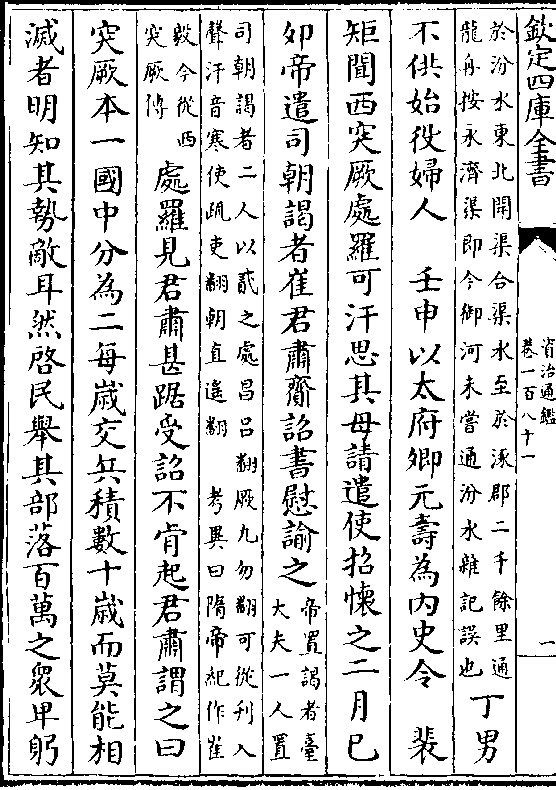 欽定四庫全書
資治通鑑
卷一百八十一
一
於汾水東北開渠合渠水至於涿郡二千餘里通
龍舟按永濟渠即今御河未嘗通汾水雜記誤也
丁男
不供始役婦人　壬申以太府卿元壽為内史令　裴
矩聞西突厥處羅可汗思其母請遣使招懷之二月已
夘帝遣司朝謁者崔君肅齎詔書慰諭之
帝置謁者臺
大夫一人置
司朝謁者二人以貳之處昌吕翻厥九勿翻可從刋入
聲汗音寒使疏吏翻朝直遥翻　考異曰隋帝紀作崔
毅今從西
突厥傳
處羅見君肅甚踞受詔不肯起君肅謂之曰
突厥本一國中分為二每歲交兵積數十歲而莫能相
滅者明知其勢敵耳然啓民舉其部落百萬之衆卑躬